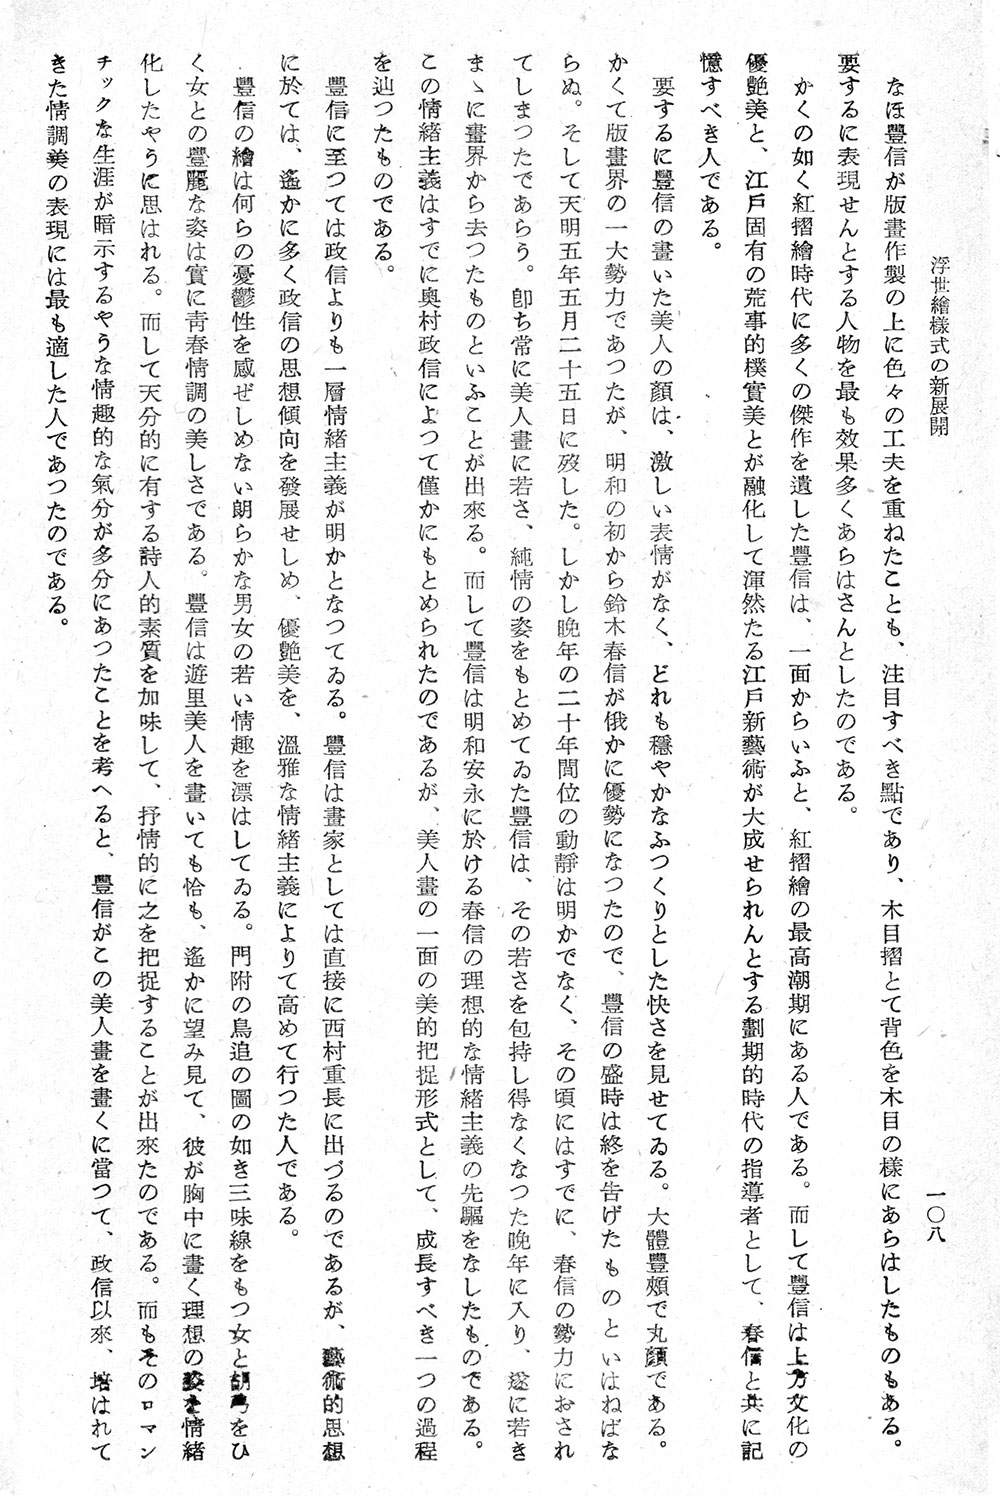 浮世繪樣式の新展開
一〇八
なほ豐信が版畫作製の上に色々の工夫を重ねたことも、注目すべき點であり、木目摺とて背色を木目の樣にあらはしたものもある。
要するに表現せんとする人物を最も效果多くあらはさんとしたのである。
かくの如く紅摺繪時代に多くの傑作を遺した豐信は、一面からいふと、紅摺繪の最高潮期にある人である。而して豐信は上方文化の
優艶美と、江戶固有の荒事的樸實美とが融化して渾然たる江戶新藝術が大成せられんとする劃期的時代の指導者として、春信と共に記
憶すべき人である。
要するに豐信の畫いた美人の顏は、激しい表情がなく、どれも穩やかなふつくりとした快さを見せてゐる。大體豐頰で丸顏である。
かくて版畫界の一大勢力であつたが、明和の初から鈴木春信が俄かに優勢になつたので、豐信の盛時は終を告げたものといはねばな
らぬ。そして天明五年五月二十五日に歿した。しかし晩年の二十年間位の動靜は明かでなく、その頃にはすでに、春信の勢力におされ
てしまつたであらう。卽ち常に美人畫に若さ、純情の姿をもとめてゐた豐信は、その若さを包持し得なくなつた晩年に入り、遂に若き
まゝに畫界から去つたものといふことが出來る。而して豐信は明和安永に於ける春信の理想的な情緒主義の先驅をなしたものである。
この情緒主義はすでに奧村政信によつて僅かにもとめられたのであるが、美人畫の一面の美的把捉形式として、成長すべき一つの過程
を辿つたものである。
豐信に至つては政信よりも一層情緒主義が明かとなつてゐる。豐信は畫家としては直接に西村重長に出づるのであるが、藝術的思想
に於ては、遙かに多く政信の思想傾向を發展せしめ、優艶美を、溫雅な情緒主義によりて高めて行つた人である。
豐信の繪は何らの憂鬱性を感ぜしめない朗らかな男女の若い情趣を漂はしてゐる。門附の鳥追の圖の如き三味線をもつ女と胡弓をひ
く女との豐麗な姿は實に靑春情調の美しさである。豐信は遊里美人を畫いても恰も、遙かに望み見て、彼が胸中に畫く理想の姿を情緒
化したやうに思はれる。而して天分的に有する詩人的素質を加味して、抒情的に之を把捉することが出來たのである。而もそのロマン
チックな生涯が暗示するやうな情趣的な氣分が多分にあつたことを考へると、豐信がこの美人畫を畫くに當つて、政信以來、培はれて
きた情調美の表現には最も適した人であつたのである。